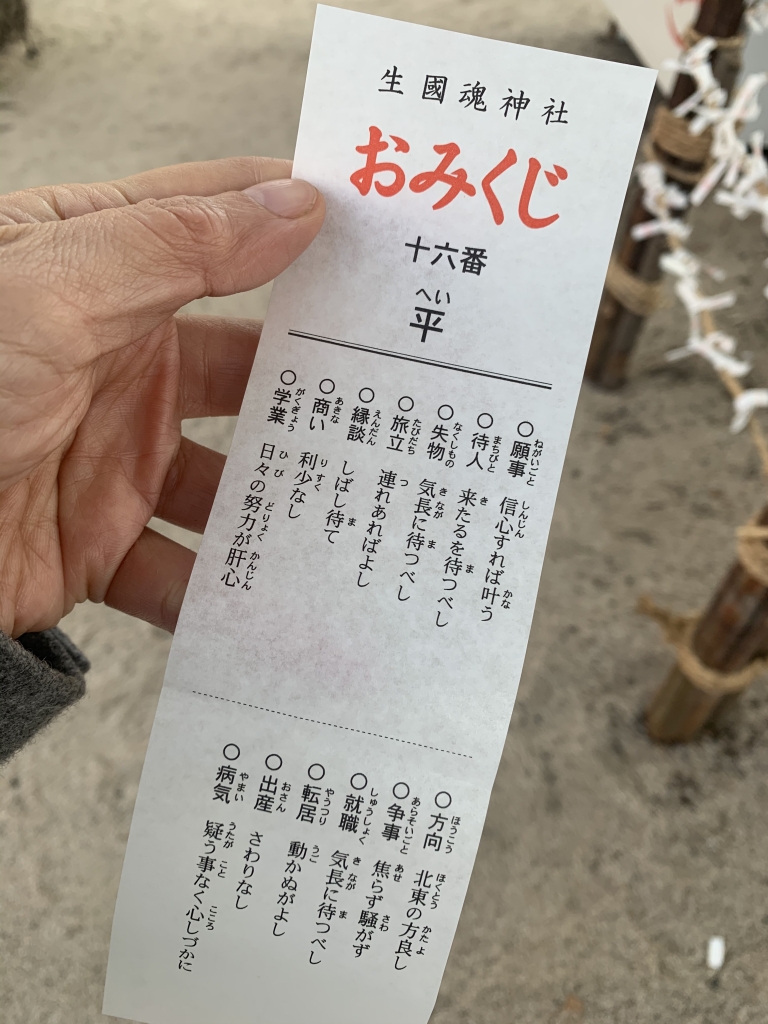 生國魂神社
おみくじ
十六番
へい
平
○願事 信心すれば叶う
○待人 来たるを待つべし
○失物 気長に待つべし
○旅立 連れあればよし
○縁談 しばし待て
○商い 利少なし
○学業 日々の努力が肝心
○方向 北東の方良し
○争事 焦らず騒がず
○就職 気長に待つべし
○転居 動かぬがよし
○出産 さわりなし
○病気 疑う事なく心しづかに